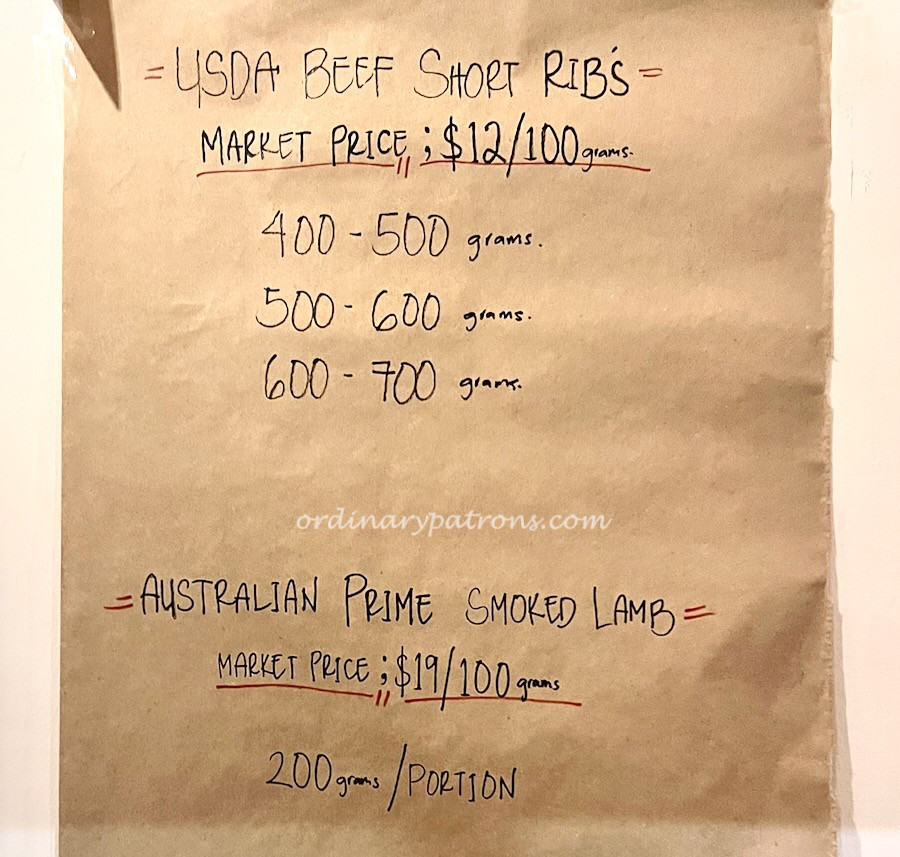 = USDA BEEF SHORT RIB'S =
MARKET PRICE ; $12/100 grams.
400 - 500 grams.
500 - 600 grams.
600 - 700 grams.
ordinarypatrons.com
= AUSTRALIAN PRIME SMOKED LAMB =
MARKET PRICE ; $19/100 grams
200 grams / PORTION